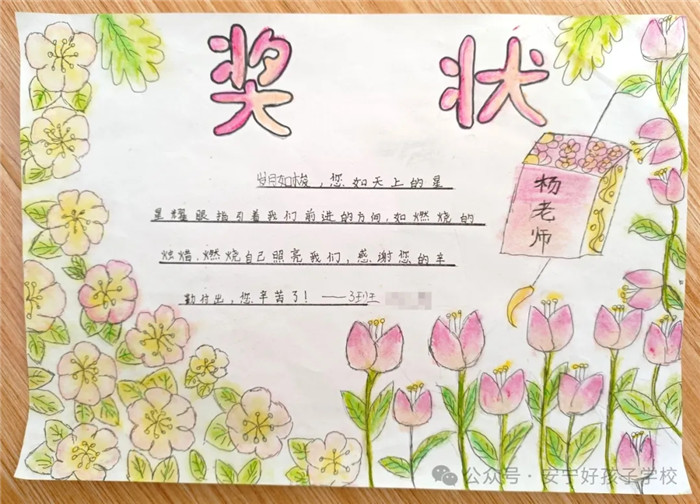 奖状
岁月如梭，您如天上的星
星耀眼指引着我们前进的方向，如燃烧的
烛燃烧自己照亮我们，感谢您的辛
勤付出，您辛苦了！——3班
杨老师
公众号·安宁好孩子学校